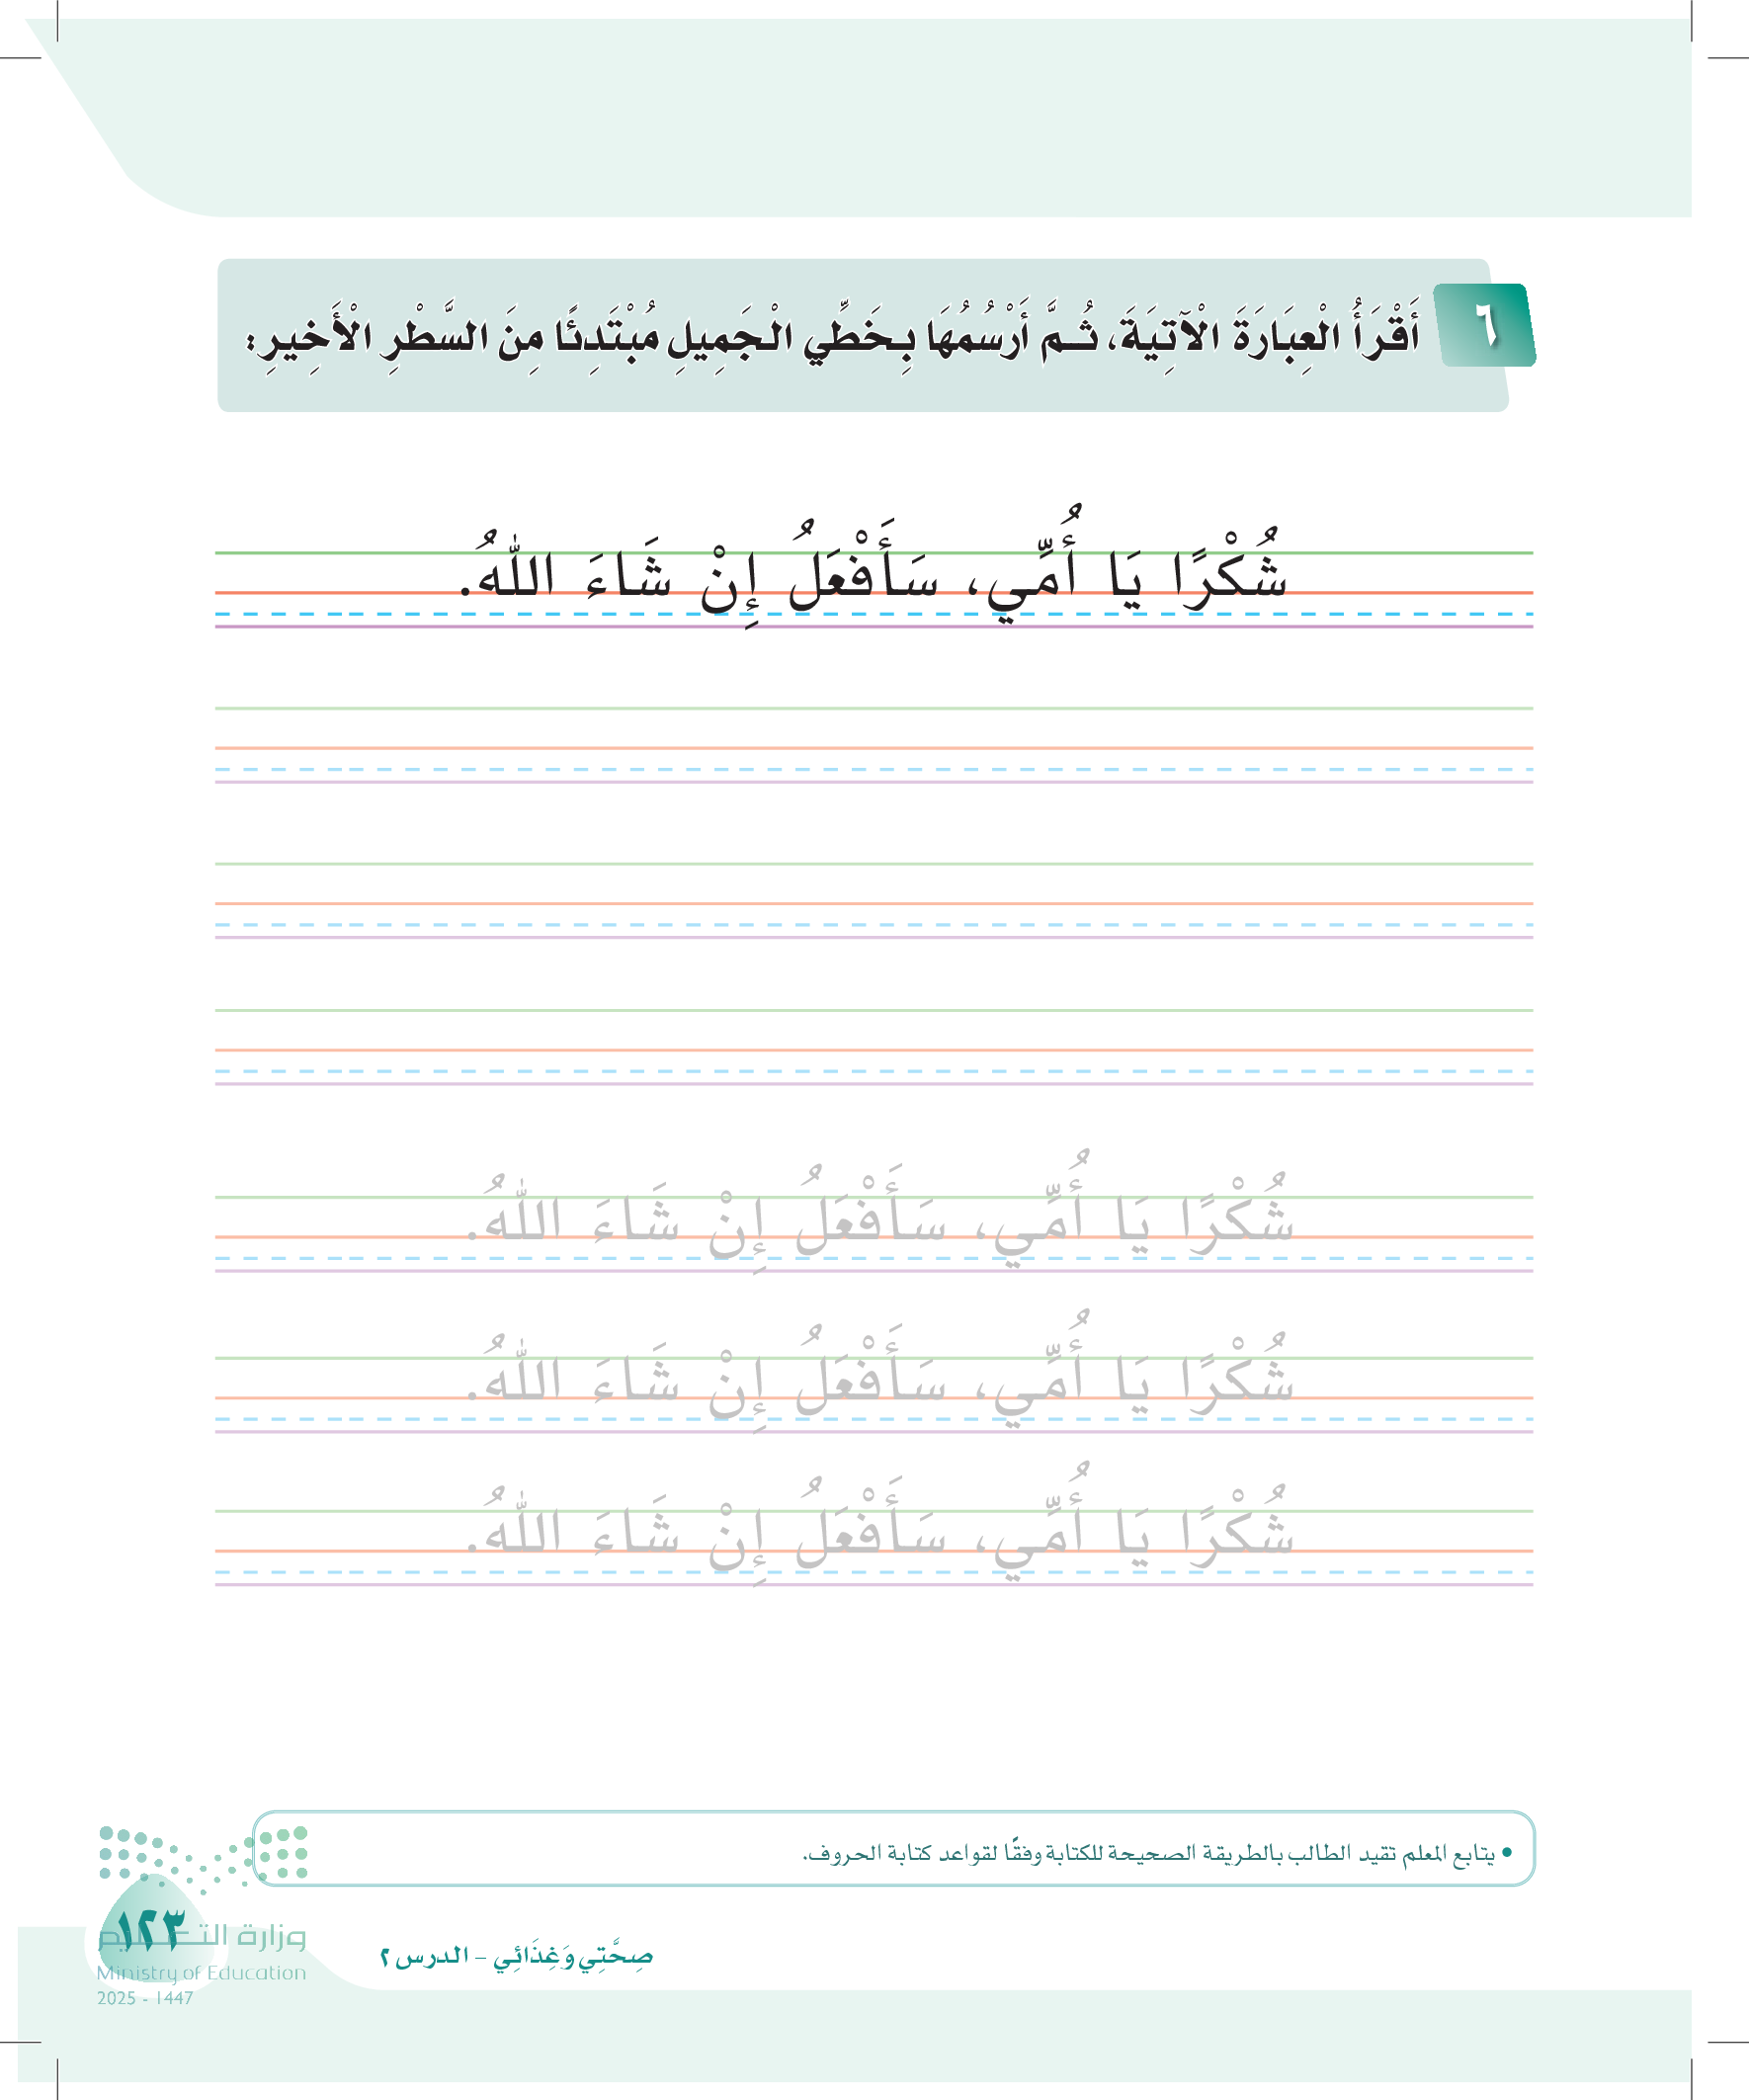 ٦
أَقْرَأُ الْعِبَارَةَ الْآتِيَةَ، ثُمَّ أَرْسُمُهَا بِخَطِّي الْجَمِيلِ مُبْتَدِئًا مِنَ السَّطْرِ الْأَخِيرِ:
شُكْرًا يَا أُمِّي، سَأَفْعَلُ إِنْ شَاءَ اللَّهُ.
شُكْرًا يَا أُمِّي، سَأَفْعَلُ إِنْ شَاءَ اللَّهُ.
شُكْرًا يَا أُمِّي، سَأَفْعَلُ إِنْ شَاءَ اللَّهُ.
شُكْرًا يَا أُمِّي، سَأَفْعَلُ إِنْ شَاءَ اللَّهُ.
• يتابع المعلم تقيد الطالب بالطريقة الصحيحة للكتابة وفقًا لقواعد كتابة الحروف.
صِحَّتِي وَغِذَائِي - الدرس ٢
١٢٣
وزارة التعليم
Ministry of Education
2025 - 1447